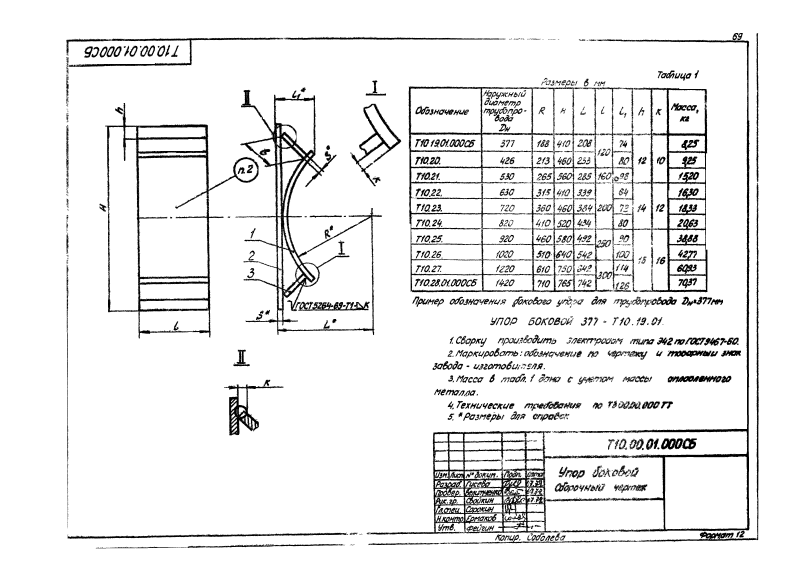 69
Т10.00.01.000СБ
Таблица 1
Размеры в мм
Обозначение | Наружный диаметр трубопровода Dн | R | H | L | l | L₁ | h | K | Масса, кг
Т10.19.01.000СБ | 377 | 188 | 410 | 208 | 120 | 74 | 12 | 10 | 8,25
Т10.20. | 426 | 213 | 460 | 233 | 120 | 80 | 12 | 10 | 9,25
Т10.21. | 530 | 265 | 560 | 285 | 160 | 98 | 12 | 10 | 15,20
Т10.22. | 630 | 315 | 410 | 339 | 200 | 64 | 14 | 12 | 16,30
Т10.23. | 720 | 360 | 460 | 384 | 200 | 72 | 14 | 12 | 18,33
Т10.24. | 820 | 410 | 520 | 434 | 200 | 80 | 14 | 12 | 20,63
Т10.25. | 920 | 460 | 580 | 492 | 250 | 90 | 16 | 38,88
Т10.26. | 1020 | 510 | 640 | 542 | 250 | 100 | 16 | 42,77
Т10.27. | 1220 | 610 | 750 | 642 | 300 | 114 | 16 | 60,93
Т10.28.01.000СБ | 1420 | 710 | 765 | 742 | 300 | 126 | 16 | 70,37
Пример обозначения бокового упора для трубопровода Dн=377мм
УПОР БОКОВОЙ 377 - Т10.19.01.
1. Сварку производить электродом типа Э42 по ГОСТ 9467-60.
2. Маркировать: обозначение по чертежу и товарный знак
завода - изготовителя.
3. Масса в табл. 1 дана с учетом массы наплавленного
металла.
4. Технические требования по Т3.00.00.000 ТТ
5. * Размеры для справок
II
L₁*
I
h
H
п.2
l
S*
K
R*
1
2
3
I
ГОСТ 5264-69-Т1-△K
S*
L*
II
K
Т10.00.01.000СБ
Упор боковой
Сборочный чертеж
Изм. Лист № докум. Подп. Дата
Разраб. Гусева
Провер.
Рук. гр. Свойкин
Гл. спец. Сорокин
Н. контр. Ермаков
Утв. Фейгин
Копир. Соболева
Формат 12